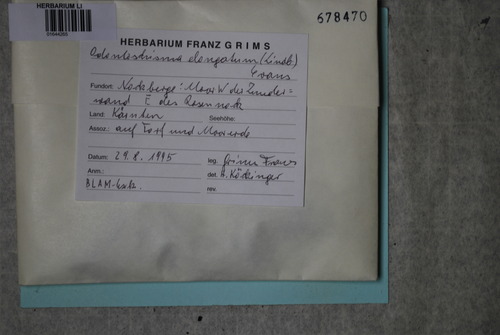 HERBARIUM LI
678470
HERBARIUM FRANZ GRIMS
Odontoschisma elongatum (Lindb.)
Evans
Fundort: Nockberge: Moor W der Zunder=
wand E des Rosennock
Land: Kärnten Seehöhe:
Assoz.: auf Torf und Moorerde
Datum: 29. 8. 1995 leg. Grims Franz
Anm.: det. H. Köckinger
BLAM-Exk. rev.